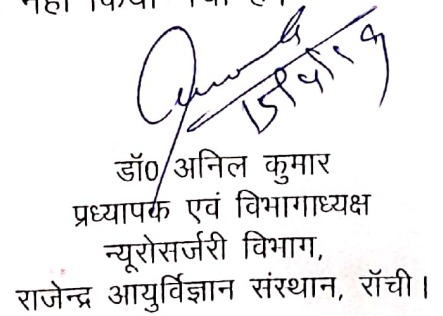 नहीं किया गया है।
डॉ0 अनिल कुमार
प्रध्यापक एवं विभागाध्यक्ष
न्यूरोसर्जरी विभाग,
राजेन्द्र आयुर्विज्ञान संस्थान, रॉची।